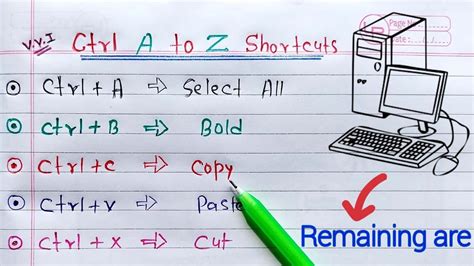 V.V.I Ctrl A to Z Shortcuts
Page No
Date:
Ctrl + A ⇒ Select All
Ctrl + B ⇒ Bold
Ctrl + c ⇒ Copy
Ctrl + v ⇒ Paste
Ctrl + x ⇒ Cut
Remaining are